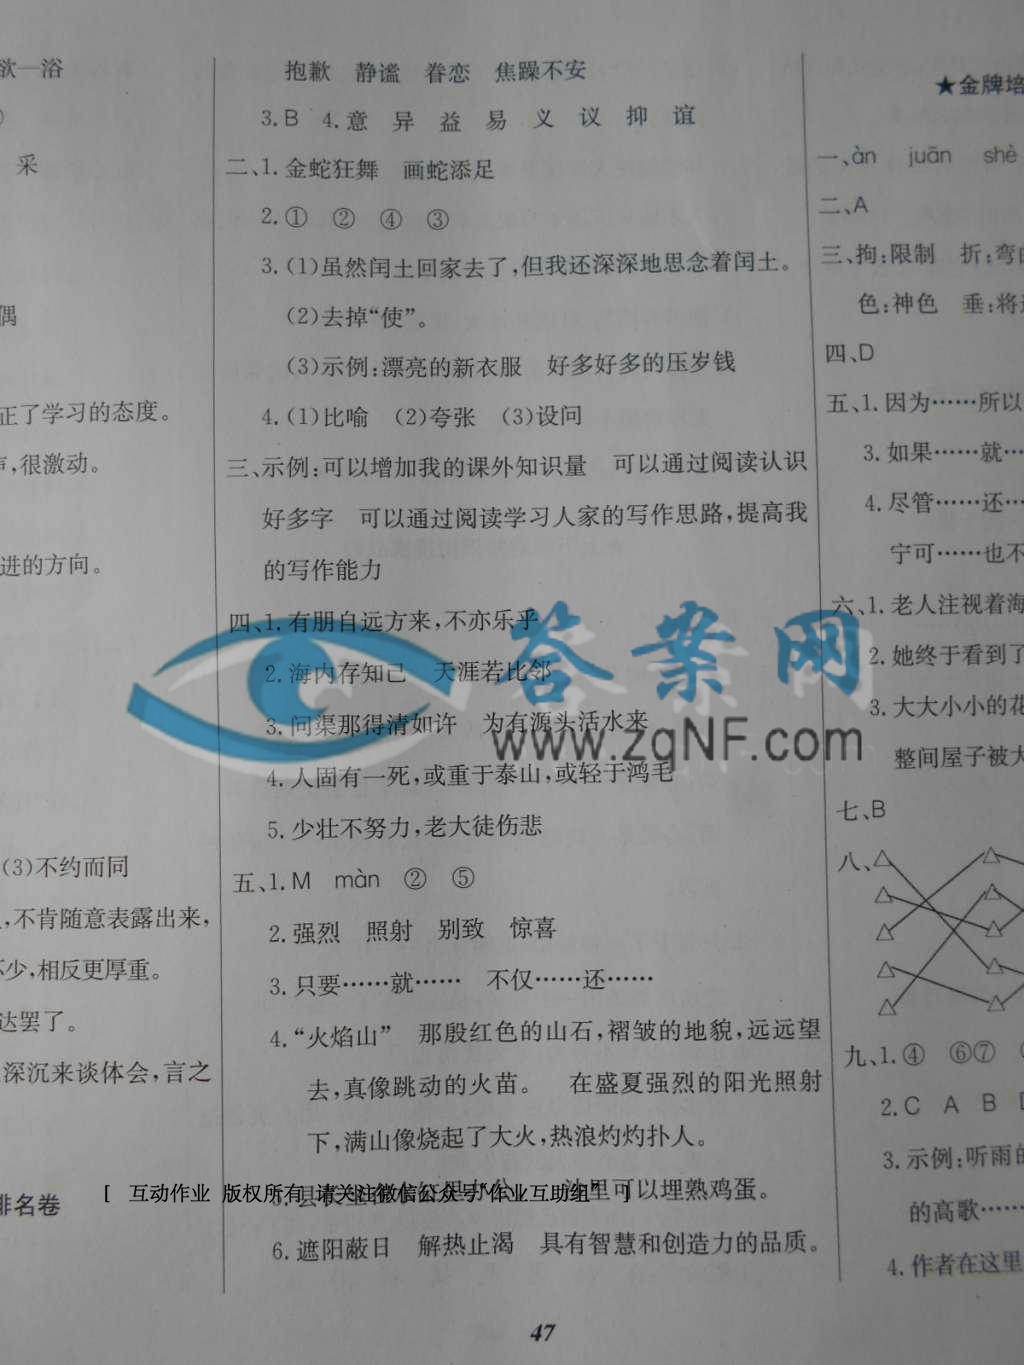 欲—浴
采
偶
正了学习的态度。
声,很激动。
进的方向。
(3)不约而同
,不肯随意表露出来,
不少,相反更厚重。
达罢了。
深沉来谈体会,言之
排名卷
抱歉 静谧 眷恋 焦躁不安
3.B 4.意 异 益 易 义 议 抑 谊
二、1.金蛇狂舞 画蛇添足
2.① ② ④ ③
3.(1)虽然闰土回家去了,但我还深深地思念着闰土。
(2)去掉“使”。
(3)示例:漂亮的新衣服 好多好多的压岁钱
4.(1)比喻 (2)夸张 (3)设问
三、示例:可以增加我的课外知识量 可以通过阅读认识
好多字 可以通过阅读学习人家的写作思路,提高我
的写作能力
四、1.有朋自远方来,不亦乐乎
2.海内存知己 天涯若比邻
3.问渠那得清如许 为有源头活水来
4.人固有一死,或重于泰山,或轻于鸿毛
5.少壮不努力,老大徒伤悲
五、1.M màn ② ⑤
2.强烈 照射 别致 惊喜
3.只要……就…… 不仅……还……
4.“火焰山” 那殷红色的山石,褶皱的地貌,远远望
去,真像跳动的火苗。 在盛夏强烈的阳光照射
下,满山像烧起了大火,热浪灼灼扑人。
沙里可以埋熟鸡蛋。
[ 互动作业 版权所有 请关注微信公众号“作业互助组” ]
6.遮阳蔽日 解热止渴 具有智慧和创造力的品质。
47
★金牌培
一、àn juān shè
二、A
三、拘:限制 折:弯
色:神色 垂:将
四、D
五、1.因为……所以
3.如果……就…
4.尽管……还…
宁可……也不
六、1.老人注视着海
2.她终于看到了
3.大大小小的花
整间屋子被大
七、B
八、
九、1.④ ⑥⑦
2.C A B
3.示例:听雨的
的高歌……
4.作者在这里
答案网
www.zqNF.com